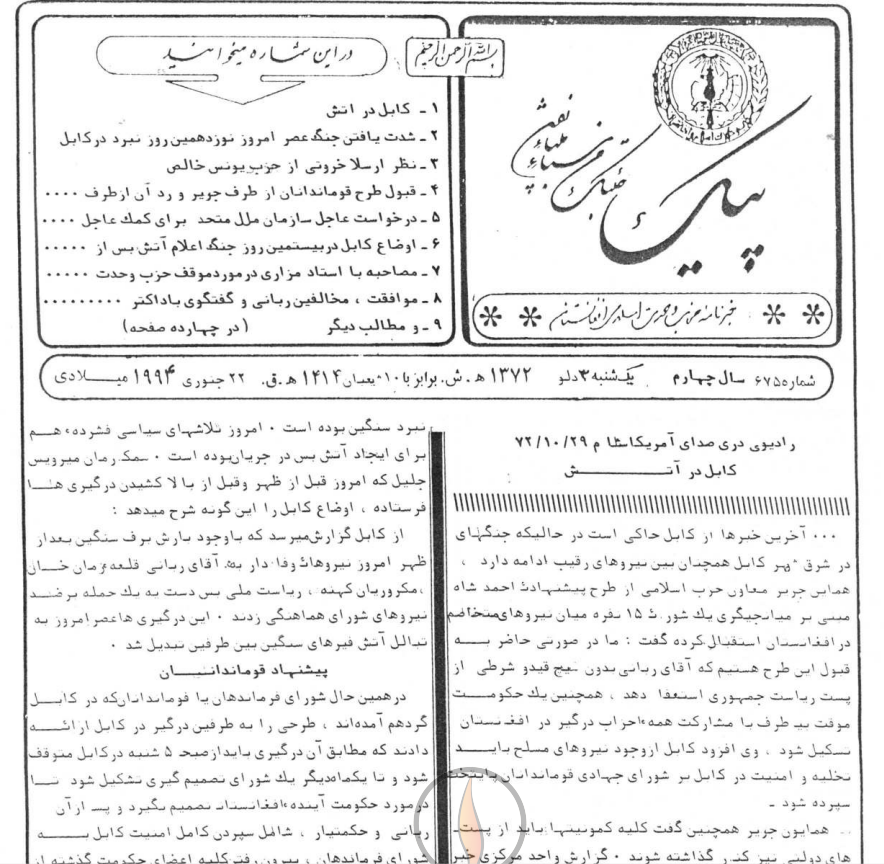 بسم الله الرحمن الرحیم
در این شماره میخوانید
۱ ـ کابل در اتش
۲ ـ شدت یافتن جنگ عصر امروز نوزدهمین روز نبرد درکابل
۳ ـ نظر ارسلا خروتی از حزب یونس خالص
۴ ـ قبول طرح قوماندانان از طرف جریر و رد آن ازطرف ۰۰۰۰
۵ ـ درخواست عاجل سازمان ملل متحد برای کمك عاجل ۰۰۰۰
۶ ـ اوضاع کابل دربیستمین روز جنگ اعلام آتش بس از ۰۰۰۰۰
۷ ـ مصاحبه با استاد مزاری درمورد موقف حزب وحدت ۰۰۰۰۰
۸ ـ موافقت ، مخالفین ربانی و گفتگوی باداکتر ۰۰۰۰۰۰۰۰۰
۹ ـ و مطالب دیگر (در چهارده صفحه)
پیک
خبرنامه حزب وحدت اسلامی افغانستان
شماره ۶۷۵ سال چهارم یکشنبه ۳ دلو ۱۳۷۲ ه . ش. برابر با ۱۰ شعبان ۱۴۱۴ ه .ق. ۲۲ جنوری ۱۹۹۴ میلادی
رادیوی دری صدای آمریکا شام ۷۲/۱۰/۲۹
کابل در آتش
۰۰۰ آخرین خبرها از کابل حاکی است در حالیکه جنگهای
در شرق شهر کابل همچنان بین نیروهای رقیب ادامه دارد ،
همایون جریر معاون حزب اسلامی از طرح پیشنهادی احمد شاه
مبنی بر میانجیگری یك شورای ۱۵ نفره میان نیروهای متخاصم
در افغانستان استقبال کرده گفت : ما در صورتی حاضر به
قبول این طرح هستیم که آقای ربانی بدون هیچ قیدو شرطی از
پست ریاست جمهوری استعفا دهد ، همچنین یك حکومت
موقت بیطرف با مشارکت همه احزاب درگیر در افغانستان
تشکیل شود . وی افزود کابل ازوجود نیروهای مسلح باید
تخلیه و امنیت در کابل بر شورای جهادی قوماندانان پایتخت
سپرده شود ـ
همایون جریر همچنین گفت کلیه کمونیتها باید از پست
های دولتی نیز کنار گذاشته شوند ۰ گزارش واحد مرکزی خبر
نبرد سنگین بوده است ۰ امروز تلاشهای سیاسی فشرده هم
برای ایجاد آتش بس در جریان بوده است ۰ میرویس
جلیل که امروز قبل از ظهر وقبل از بالا کشیدن درگیری ها
فرستاده ، اوضاع کابل را این گونه شرح میدهد :
از کابل گزارش میرسد که باوجود بارش برف سنگین بعداز
ظهر امروز نیروهای وفادار به آقای ربانی قلعه زمان خان
،مکروریان کهنه ، ریاست ملی بس دست به یك حمله برضد
نیروهای شورای هماهنگی زدند ۰ این درگیری ها عصر امروز به
تبادل آتش فیرهای سنگین بین طرفین تبدیل شد ۰
پیشنهاد قوماندانان
در همین حال شورای فرماندهان یا قوماندانان که در کابل
گردهم آمده‌اند ، طرحی را به طرفین درگیر در کابل ارائه
دادند که مطابق آن درگیری باید از صبح ۵ شنبه درکابل متوقف
شود و تا یکماه دیگر یك شورای تصمیم گیری تشکیل شود تا
درمورد حکومت آینده افغانستان تصمیم بگیرد و پس ازآن
ربانی و حکمتیار ، شامل سپردن کامل امنیت کابل به
شورای فرماندهان ، بیرون رفتن کلیه اعضای حکومت گذشته از